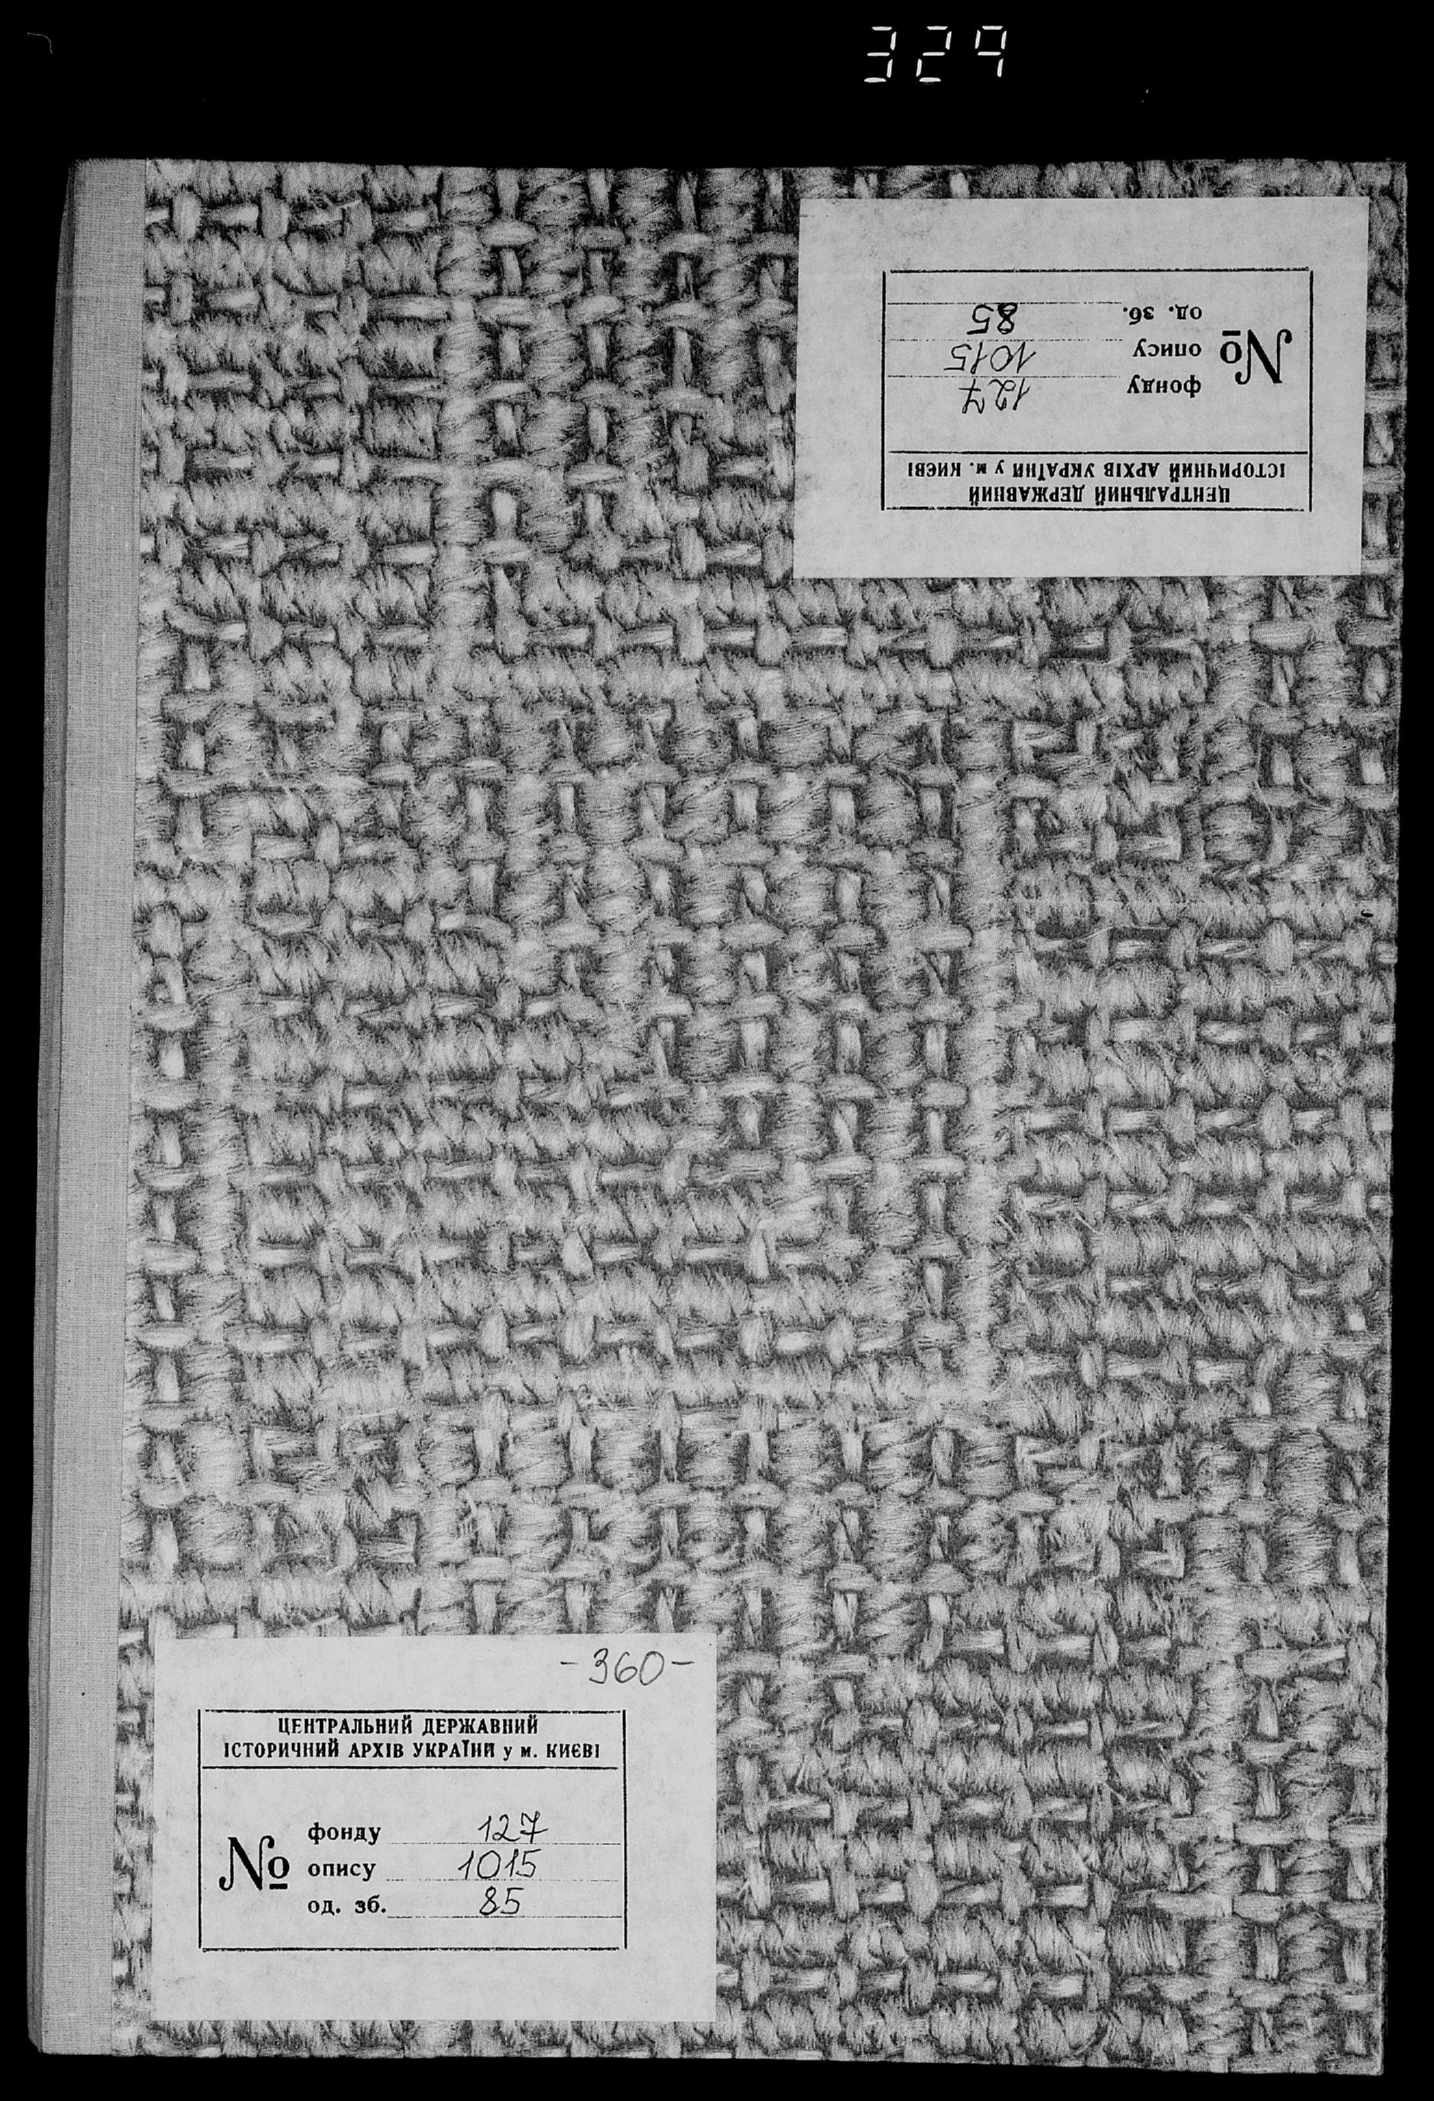 329
ЦЕНТРАЛЬНИЙ ДЕРЖАВНИЙ
ІСТОРИЧНИЙ АРХІВ УКРАЇНИ у м. КИЄВІ
№
фонду 127
опису 1015
од. зб. 85
-360-
ЦЕНТРАЛЬНИЙ ДЕРЖАВНИЙ
ІСТОРИЧНИЙ АРХІВ УКРАЇНИ у м. КИЄВІ
№
фонду 127
опису 1015
од. зб. 85